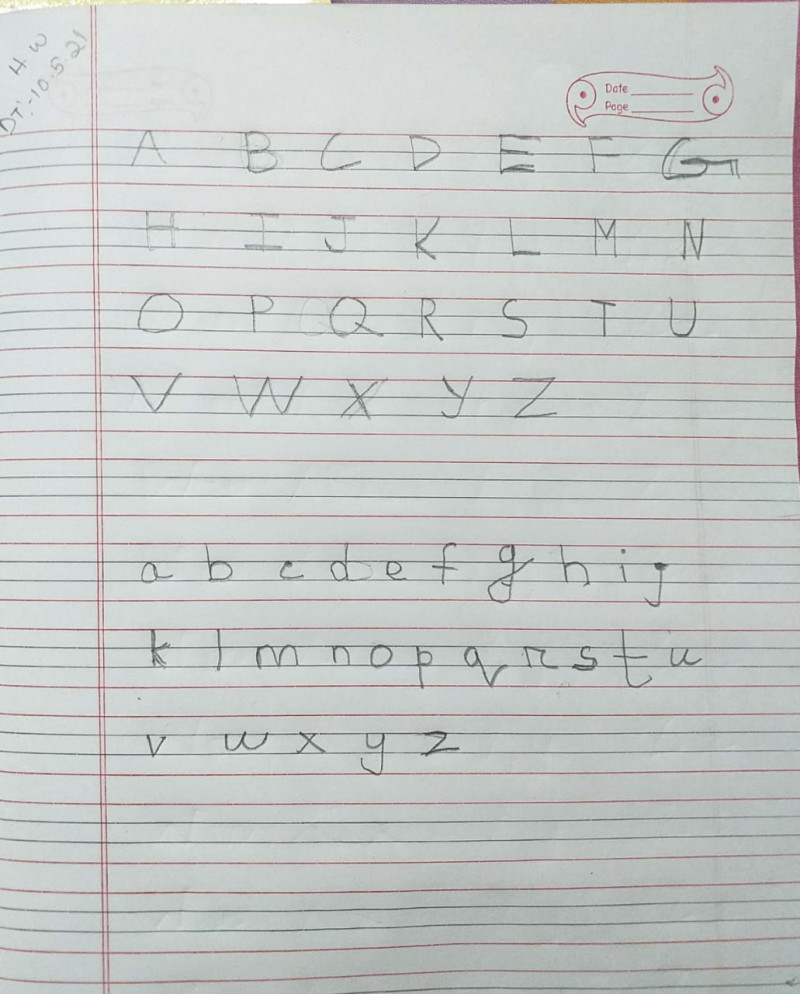 H.W
DT:-10.5.21
Date
Page
A B C D E F G
H I J K L M N
O P Q R S T U
V W X Y Z
a b c d e f g h i j
k l m n o p q r s t u
v w x y z